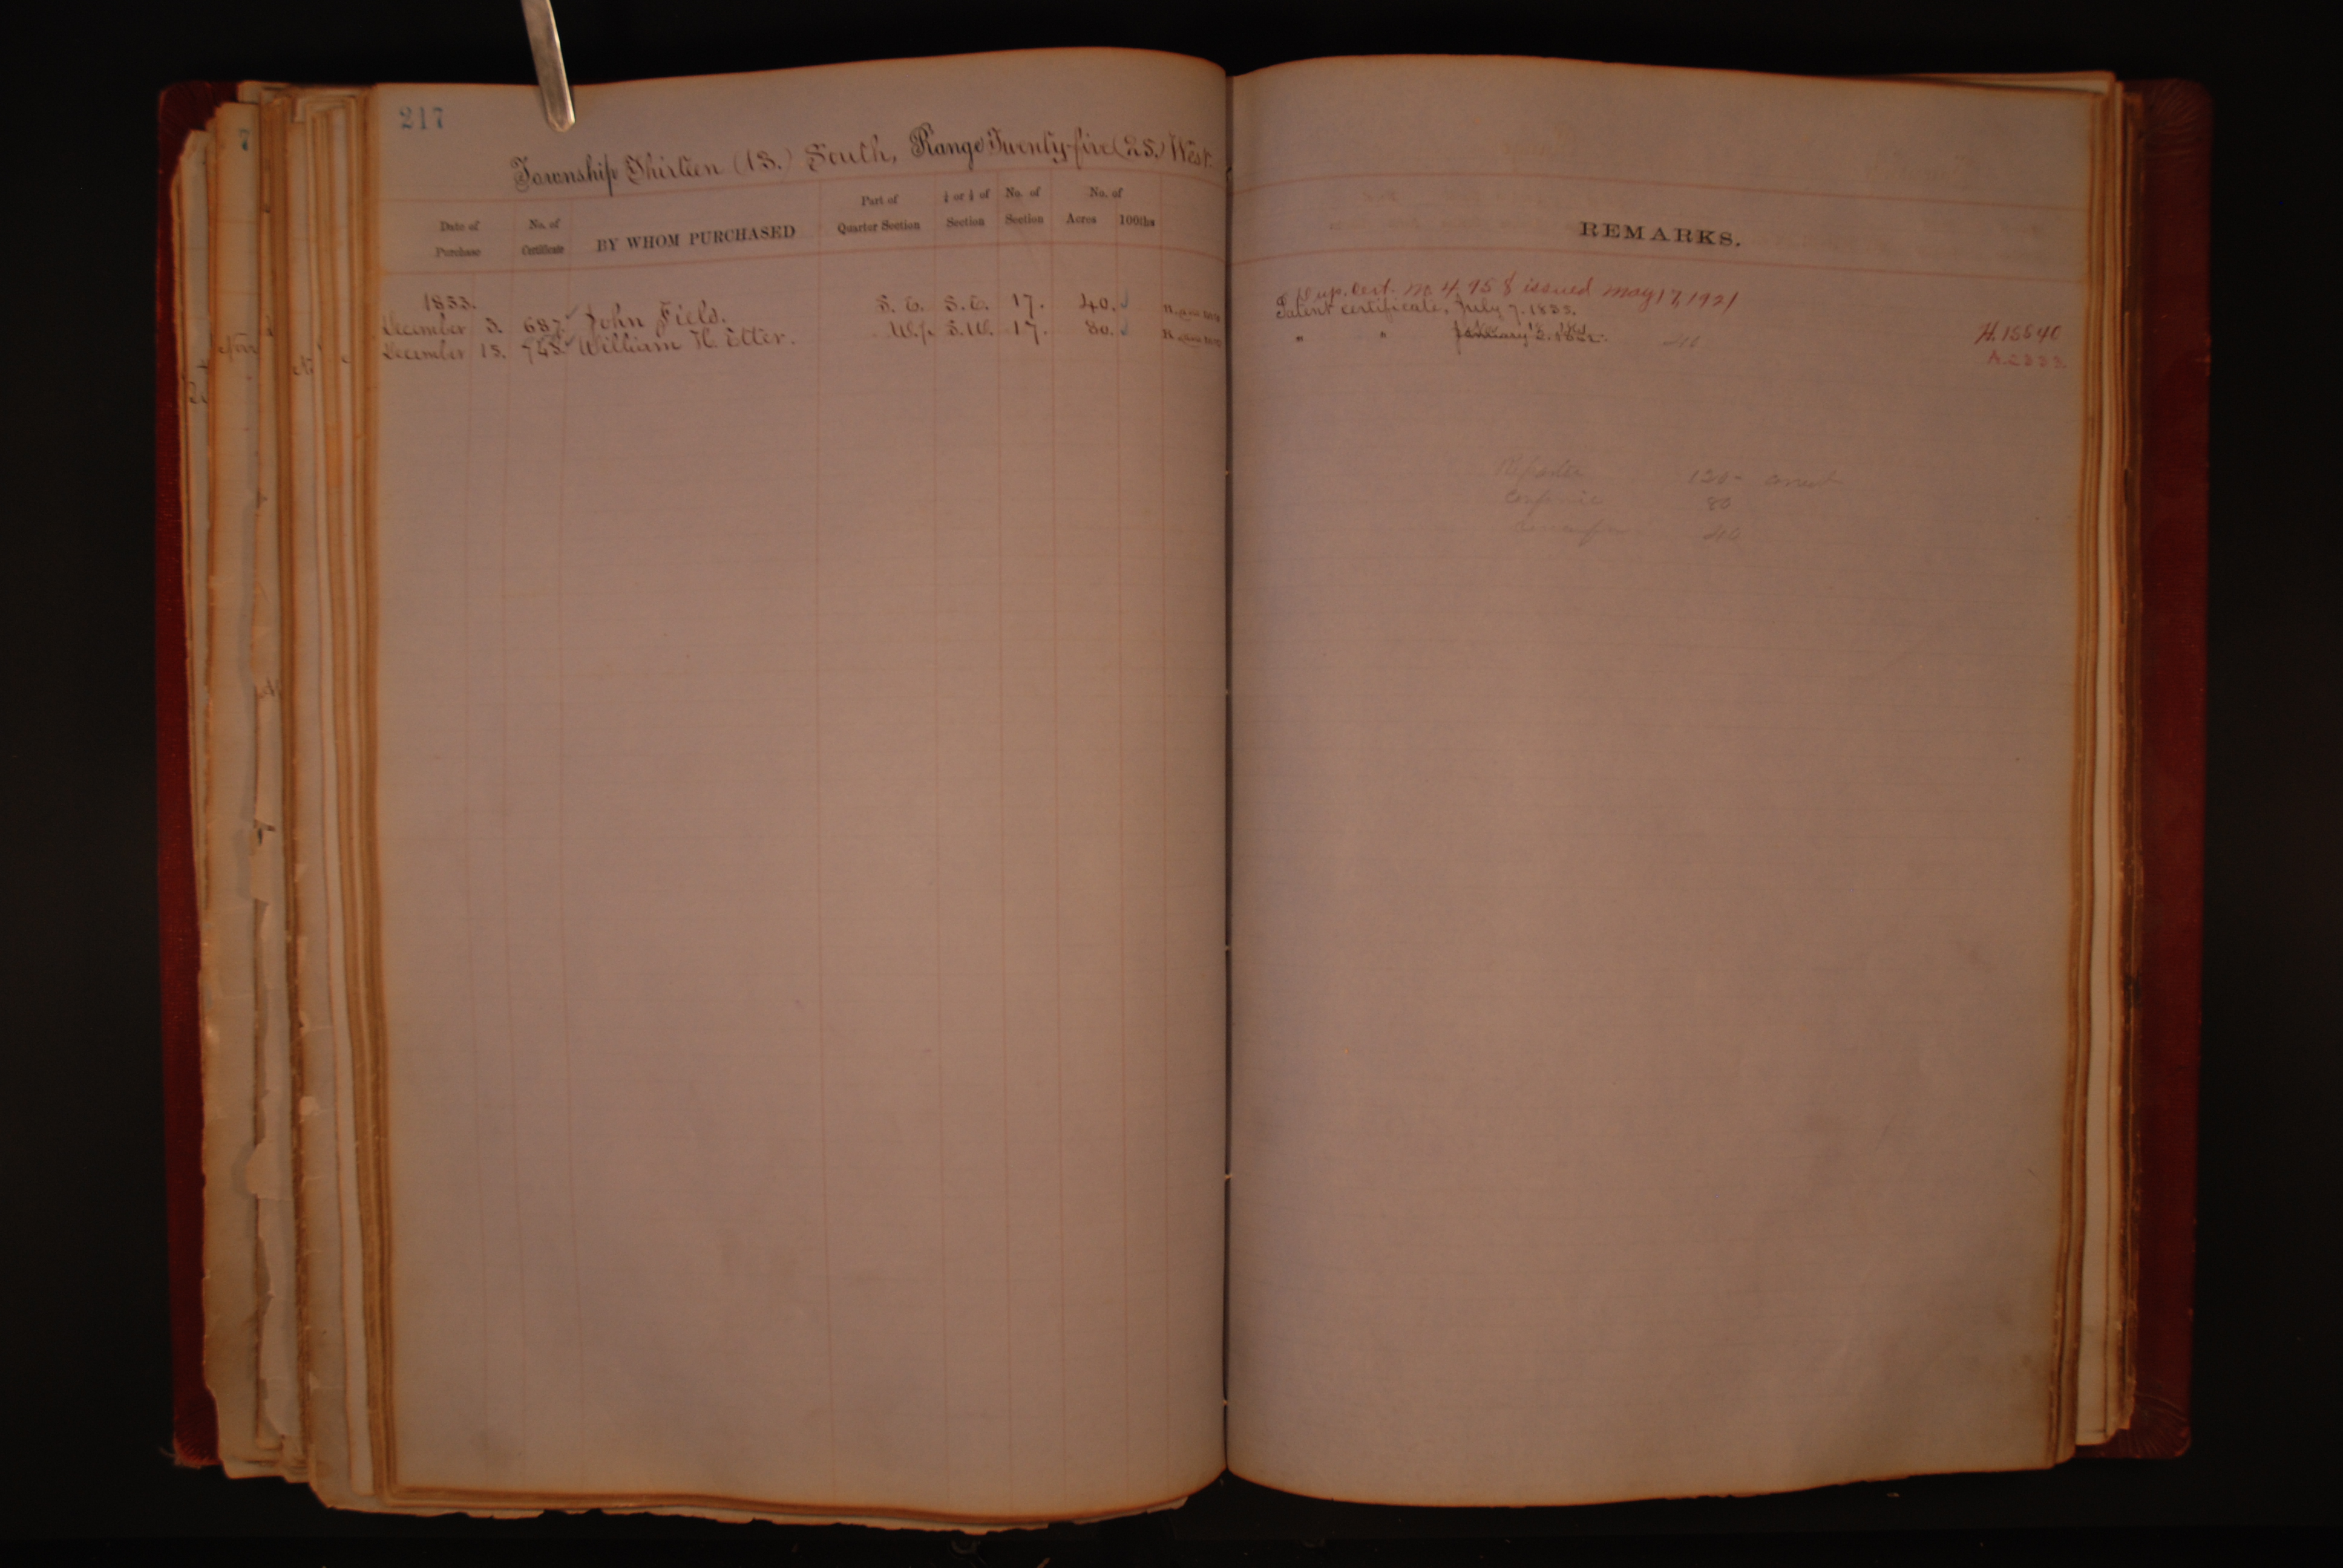 217
Township Thirteen (13.) South, Range Twenty-five (25.) West.
Date of Purchase No. of Certificate BY WHOM PURCHASED Part of Quarter Section ¼ or ½ of Section No. of Section No. of Acres 100ths
REMARKS.
1853.
Dup. Cert. No. 4,958 issued May 17, 1921
December 3. 687. John Field. S. E. S. E. 17. 40. Patent certificate, July 7. 1855.
December 15. 745. William H. Etter. W. ½ S. W. 17. 80. " " January 2. H. 15640
120
80
40